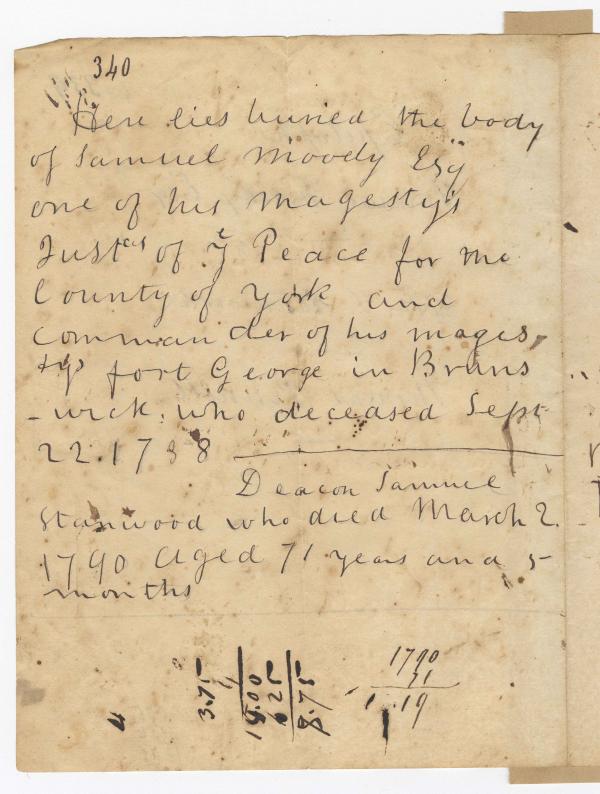 340
Here lies buried the body
of Samuel Moody Esq
one of his Magesty's
Justces of ye Peace for the
County of York and
commander of his mages
tys fort George in Bruns
-wick, who deceased Sept
22. 1738
Deacon Samuel
Stanwood who died March 2.
1790 Aged 71 years and 5
months
1790
71
1.19
3.75
4
15.00
6 25
8.75
4